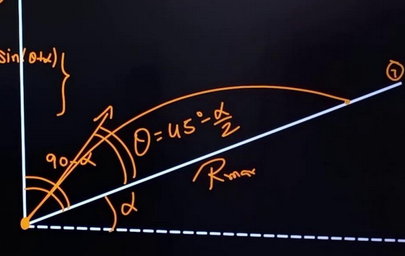 sin(θ+α)
90-α
θ = 45° - α/2
Rmax
α